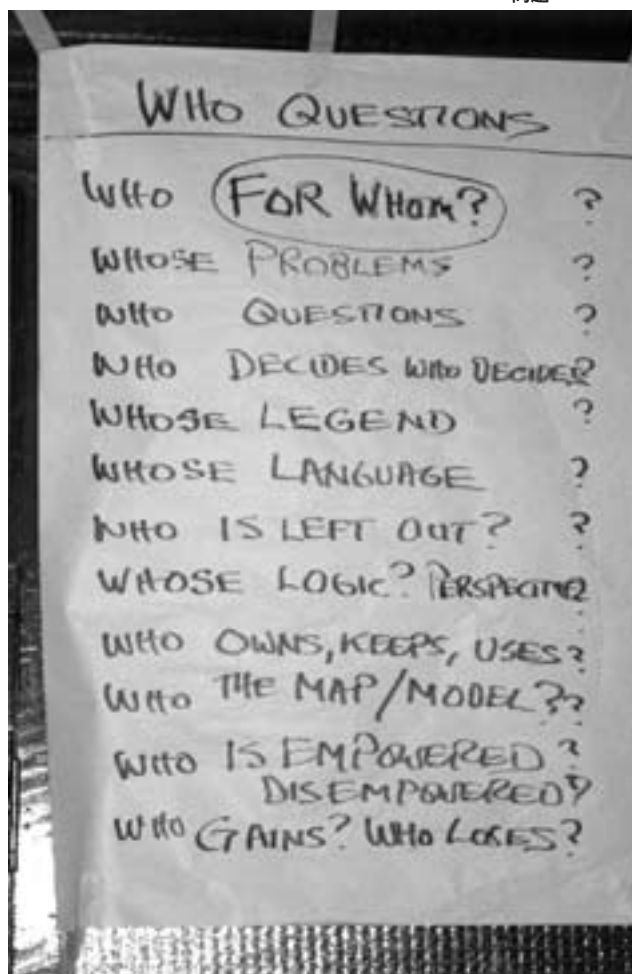 問題
WHO QUESTIONS
WHO FOR WHOM? ?
WHOSE PROBLEMS ?
WHO QUESTIONS ?
WHO DECIDES WHO DECIDES?
WHOSE LEGEND ?
WHOSE LANGUAGE ?
WHO IS LEFT OUT? ?
WHOSE LOGIC? PERSPECTIVE?
WHO OWNS, KEEPS, USES?
WHO THE MAP/MODEL??
WHO IS EMPOWERED?
DISEMPOWERED?
WHO GAINS? WHO LOSES?